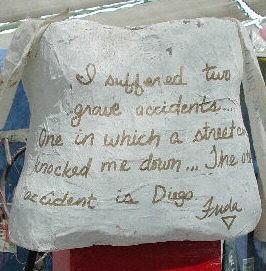 I suffered two
grave accidents...
One in which a streetcar
knocked me down... The
accident is Diego
Frida